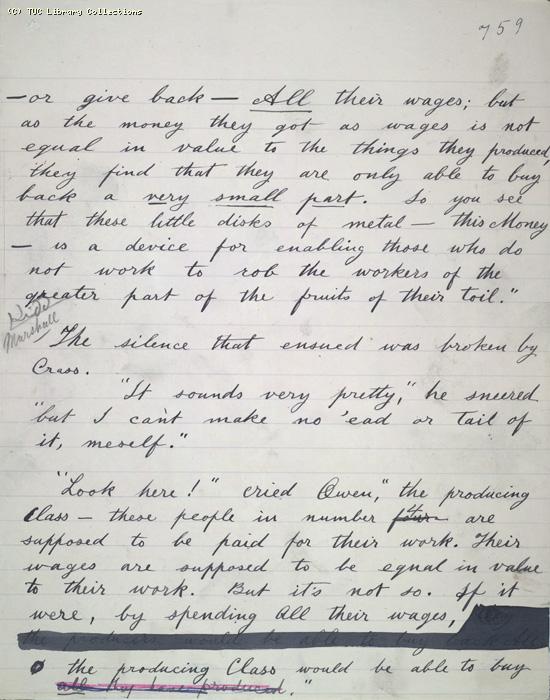 (C) TUC Library Collections
759
—or give back — All their wages; but
as the money they got as wages is not
equal in value to the things they produced,
they find that they are only able to buy
back a very small part. So you see
that these little disks of metal — this Money
— is a device for enabling those who do
not work to rob the workers of the
greater part of the fruits of their toil."
Marshall
The silence that ensued was broken by
Crass.
"It sounds very pretty," he sneered
"but I can't make no 'ead or tail of
it, meself."
"Look here!" cried Owen, "the producing
Class — these people in number four are
supposed to be paid for their work. Their
wages are supposed to be equal in value
to their work. But it's not so. If it
were, by spending All their wages,
the producers would be able to buy back all
the producing Class would be able to buy
all they have produced."